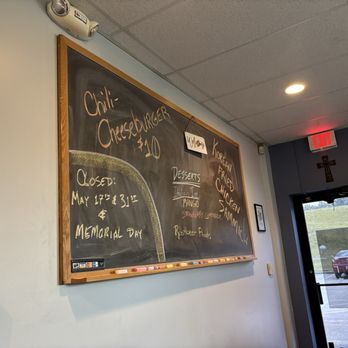 Chili-
Cheeseburger
$10
Closed:
May 17th & 31st
&
Memorial Day
Desserts
Mango
Korean
Fried
Chicken
Sandwich
EXIT